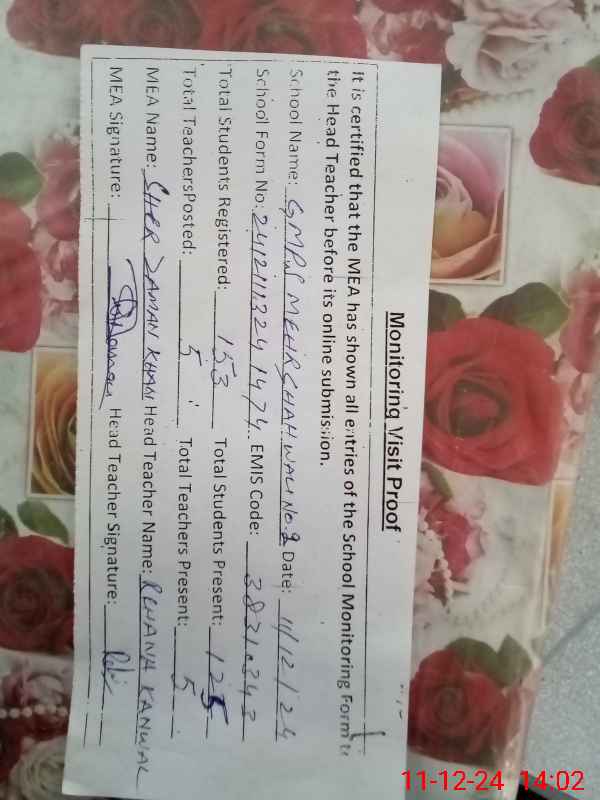 Monitoring Visit Proof
It is certified that the MEA has shown all entries of the School Monitoring Form to
the Head Teacher before its online submission.
School Name: GMPS MEHR SHAH WALI No. 2 Date: 11/12/24
School Form No: 241211132414 74 EMIS Code: 38310343
Total Students Registered: 153 Total Students Present: 125
Total TeachersPosted: 5 Total Teachers Present: 5
MEA Name: SHER ZAMAN KHAN Head Teacher Name: REHANA KANWAL
MEA Signature: Head Teacher Signature:
11-12-24 14:02